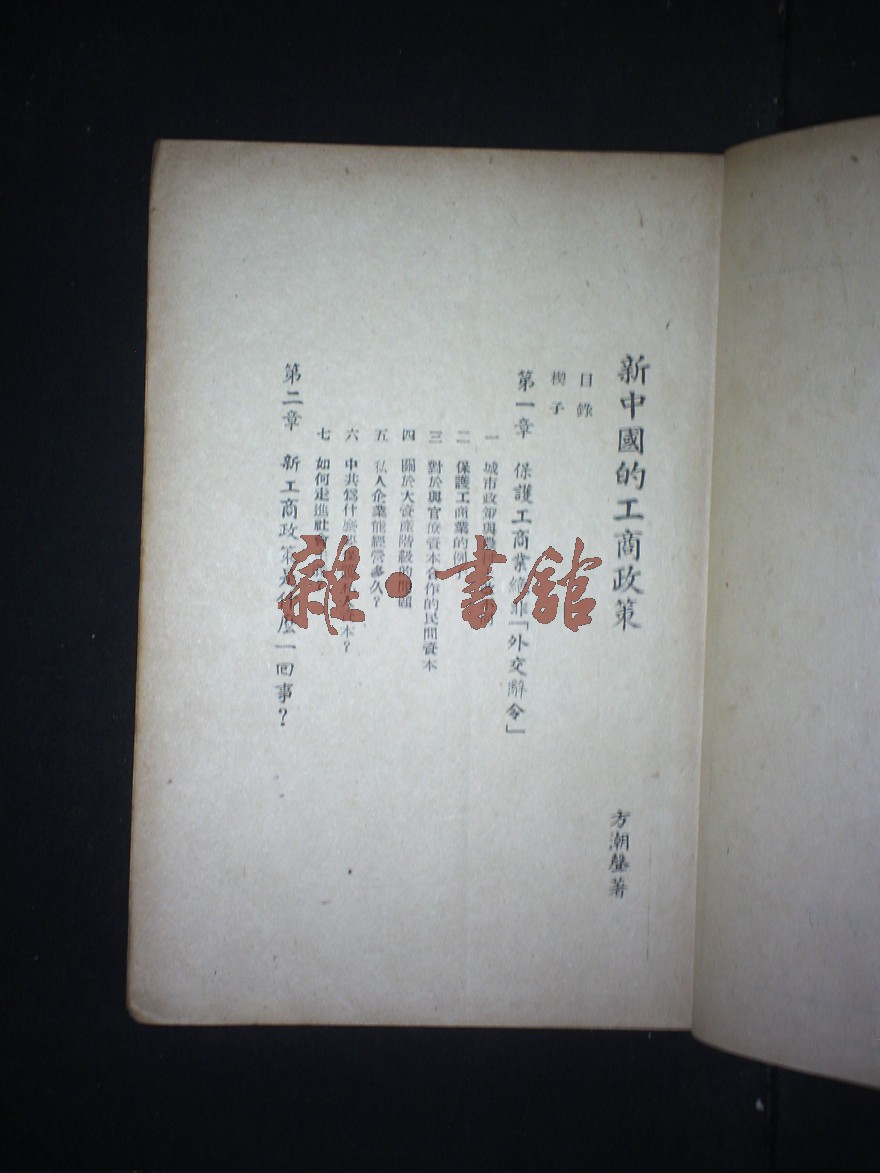 新中國的工商政策
方潮聲著
目錄
楔子
第一章 保護工商業絕非「外交辭令」
一 城市政策與
二 保護工商業的例
三 對於與官僚資本合作的民間資本
四 關於大資產階級的問題
五 私人企業能經營多久?
六 中共爲什麼 本?
七 如何走進社
第二章 新工商政策是什麼一回事?
雜·書館